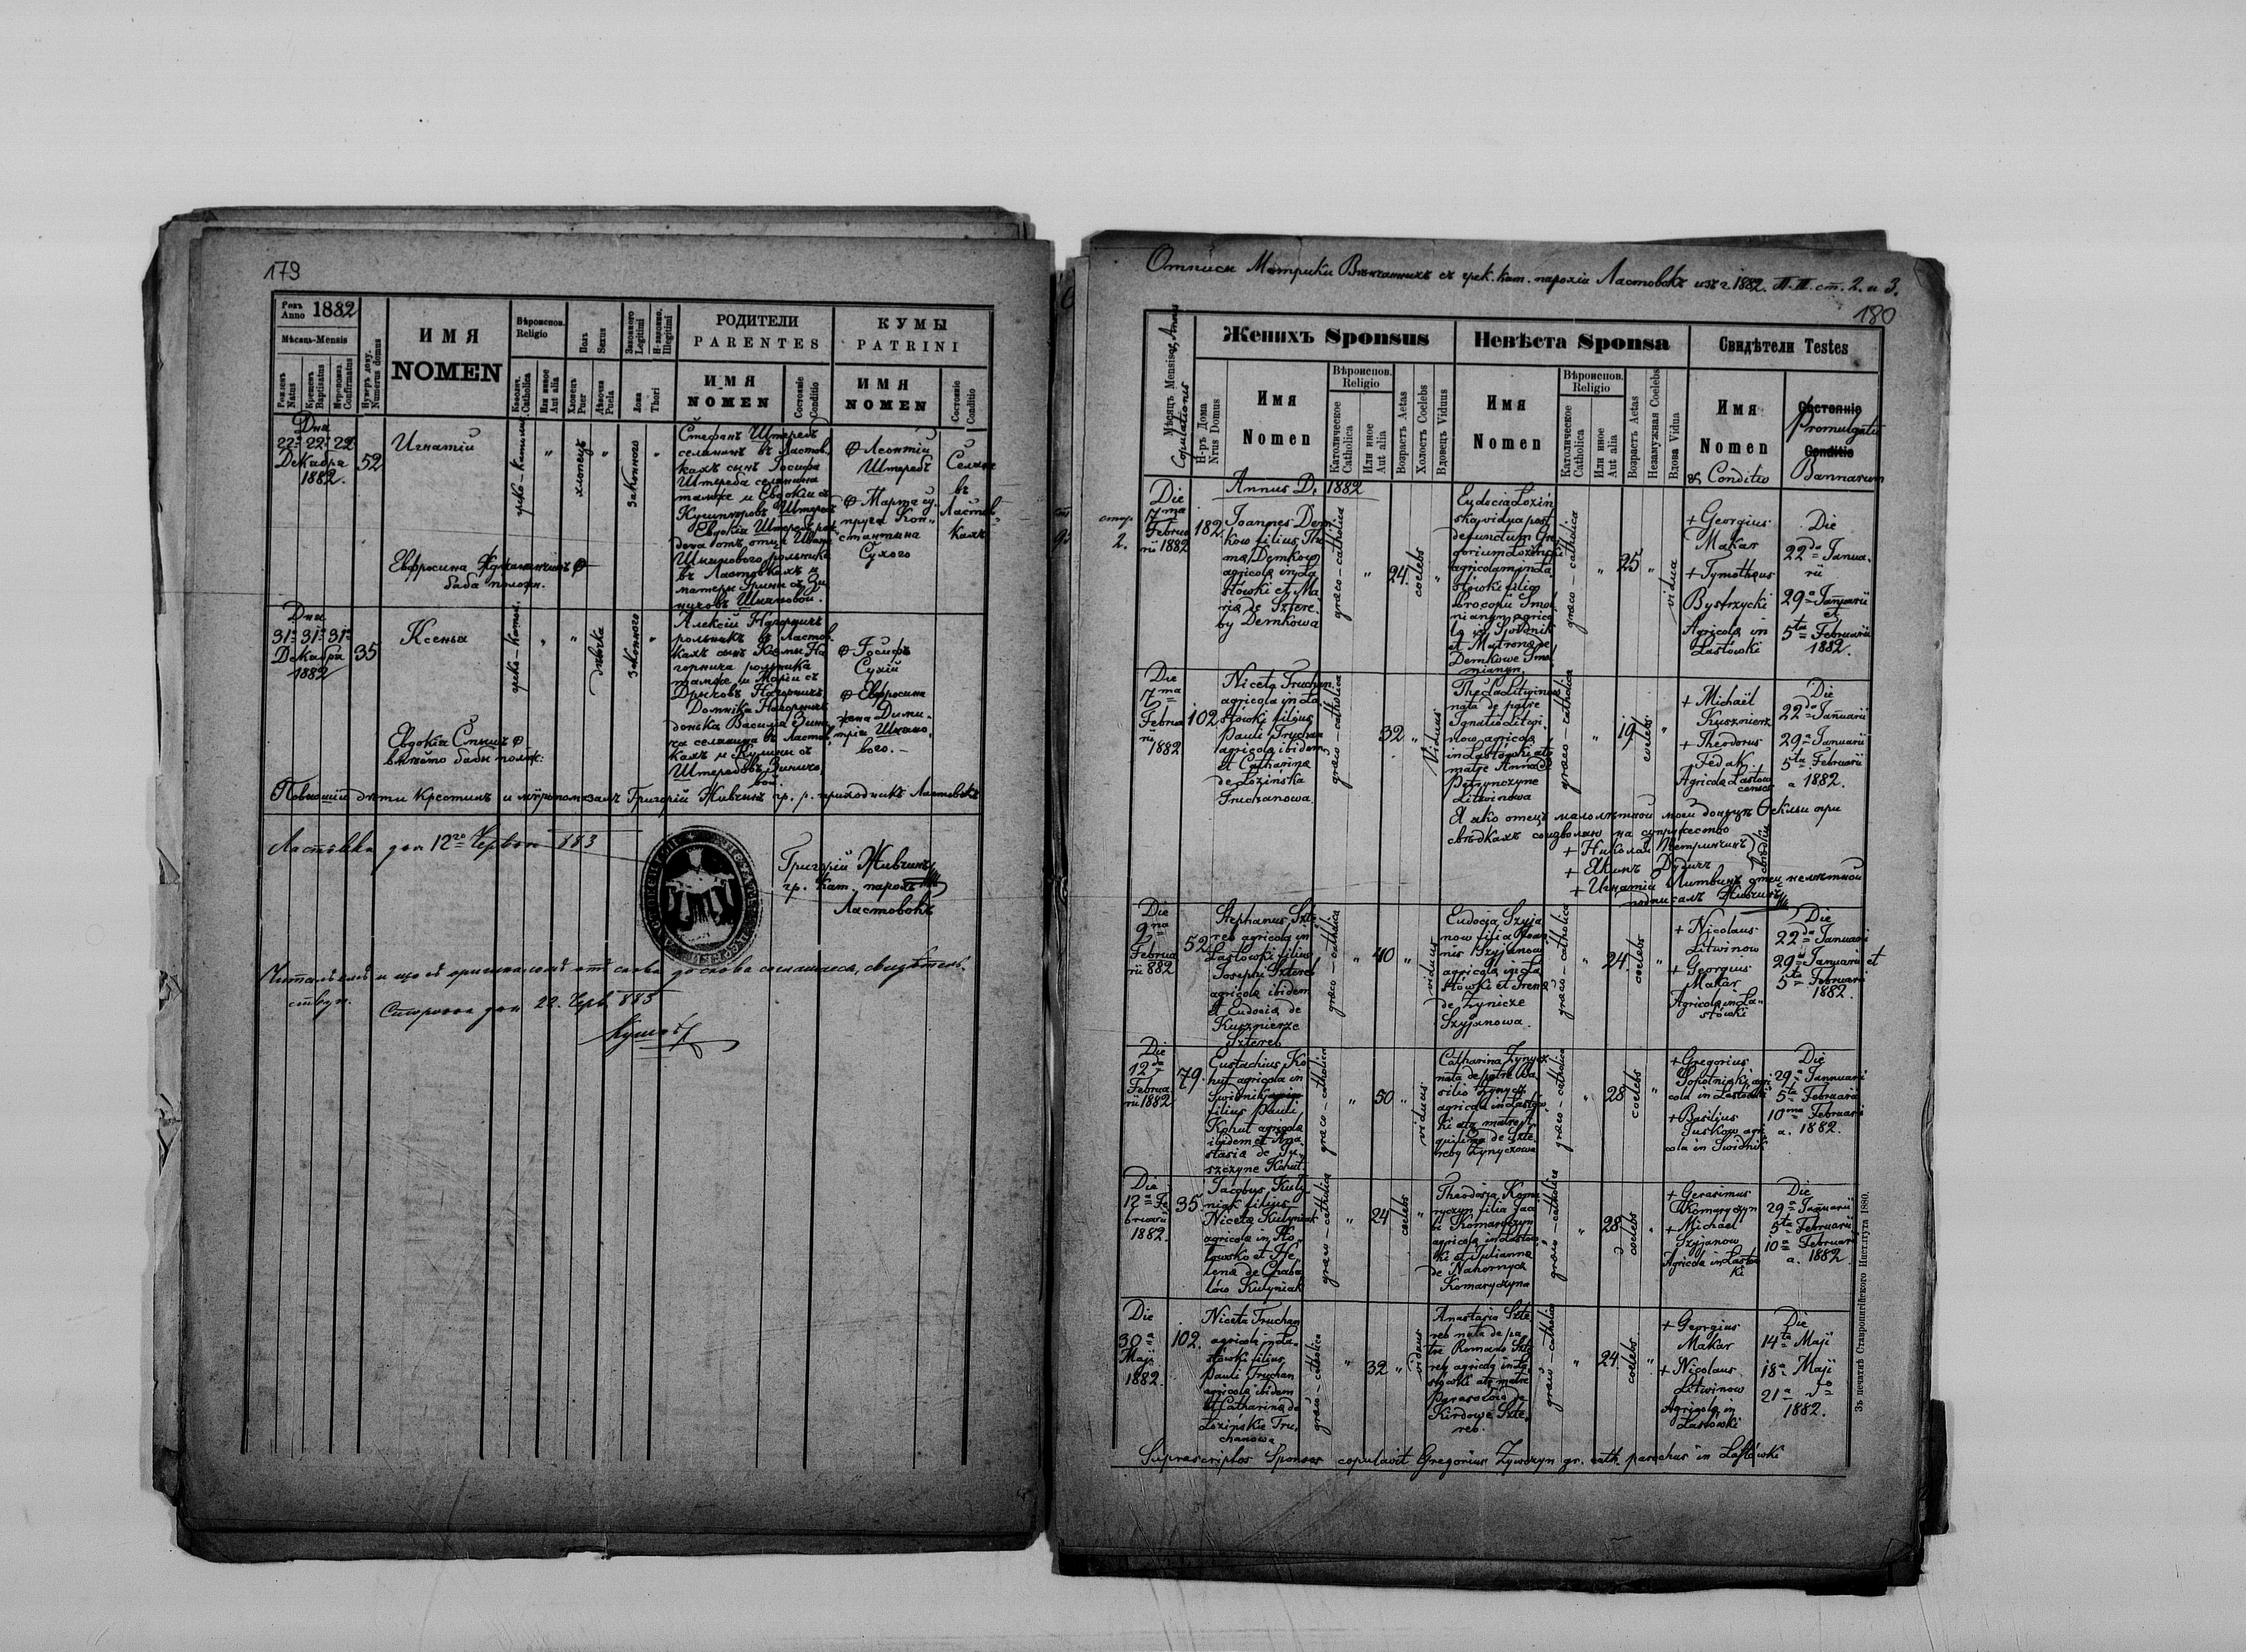 179
Рокъ Anno 1882
Мѣсяць-Mensis
Рожденъ Natus
Крещенъ Baptisatus
Мѵропомаз. Confirmatus
Нумеръ дому. Numerus domus
ИМЯ
NOMEN
Вѣроиспов. Religio
Католич. Catholica
Или иное Aut alia
Полъ Sexus
Хлопецъ Puer
Дѣвочка Puela
Законного Legitimi
Н-законно. Illegitimi
Ложа Thori
РОДИТЕЛИ
PARENTES
ИМЯ
NOMEN
Состояніе Conditio
КУМЫ
PATRINI
ИМЯ
NOMEN
Состояніе Conditio
Дня
22. 22. 22.
Декабра
1882.
52
Игнатій
греко-катол.
"
хлопецъ
"
законного
"
Стефанъ Штеребъ
селянинъ въ Ластов-
кахъ сынъ Іосифа
Штереба селянина
тамже и Евдокіи съ
Кушнѣровъ Штеребъ
Евдокія Штеребъ рож-
дена отъ отца Ивана
Шиянового рольника
въ Ластовкахъ и
матери Ирины съ Зи-
ничовъ Шияновой.
Леонтій
Штеребъ
Марта су-
пруга Кон-
стантина
Сухого
Селяне
въ
Ластов-
кахъ
Евфросина
баба положн.
Дня
31. 31. 31.
Декабра
1882
35
Ксенья
греко-катол.
"
"
дѣвчка
законного
"
Алексій Нагорничъ
рольникъ въ Ластов-
кахъ сынъ Козмы На-
горнича рольника
тамже и Маріи съ
Нагорничъ
Домніка Нагорничъ
донька Василія Зини-
ча селянина въ Ластов-
кахъ и съ
Штеребовъ Зинича-
вой.
Іосифъ
Сухій
Евфросина
жена Дими-
трія Шияно-
вого.-
Евдокіа
вмѣсто бабы полож:
дѣти крестилъ и мѵропомазалъ Григорій Живчинъ гр. к. приходникъ Ластовокъ
Ластовка дня 12го Червня 883
Григорій Живчинъ
гр. кат. парохъ
Ластовокъ
слова до слова согласится, свидѣтель-
ствую.
дня 22. Черв. 883
Отписи Метрики Вѣнчанныхъ съ грек. кат. парохіи Ластовокъ изъ г. 1882. ст. 2. и 3.
180
Мѣсяцъ Mensis et Annus
Copulationis
Н-ръ Дома Nrus Domus
Женихъ Sponsus
Имя
Nomen
Вѣроиспов. Religio
Католическое Catholica
Или иное Aut alia
Возрастъ Aetas
Холостъ Coelebs
Вдовецъ Viduus
Невѣста Sponsa
Имя
Nomen
Вѣроиспов. Religio
Католическое Catholica
Или иное Aut alia
Возрастъ Aetas
Незамужная Coelebs
Вдова Vidua
Свидѣтели Testes
Имя
Nomen
et Conditio
Состояніе
Promulgatio
Conditio
Bannorum
стр.
2.
Annus D. 1882
Die
7ma
Februa
rii 1882
182.
Joannes Dem-
kow filius Tho-
mæ Demkow
agricolæ in Ła-
stówki et Ma-
riæ de Sztere-
by Demkowa
græco-catholica
"
24.
coelebs
"
Eudocia Łoziń-
ska vidua post
defunctum Gre-
gorium Łoziński
agricolam in Ła-
stówki filia
Procopii Smol-
nianyn agrico-
læ in Swidnik
et Matronæ de
Demkowe Smol-
nianyn.
græco-catholica
"
25
"
vidua
+ Georgius
Makar
+ Tymotheus
Bystrzycki
Agricolæ in
Łastówki
Die
22da Janua-
rii
29a Januarii
et
5ta Februarii
1882.
Die
7ma
Februa-
rii
1882
102
Niceta Truchan
agricola in Ła-
stówki filius
Pauli Truchan
agricolæ ibidem
et Catharinæ
de Łozińska
Truchanowa
græco-catholica
32
"
Viduus
Thecla Litwinow
nata de patre
Ignatio Litwi-
now agricola
in Łastówki atq
matre Anna de
Petrynczyne
Litwinowa
græco-catholica
"
19
coelebs
"
+ Michaël
Kusznierz
+ Theodorus
Fedak.
Agricolæ Łastow-
censes
Die
22da Januarii
29a Januarii
5ta Februarii
a 1882.
Я яко отецъ малолѣтной моеи доньки Ѳекльи при
свѣдкахъ соизволяю на супружество
+ Николай Петринчинъ
+ Якимъ Дудичъ
свѣдки
+ Игнатій Литвинъ отец нелѣтной
подписалъ Живчинъ
Die
9na
Februa
rii 882
52
Stephanus Szte-
reb agricola in
Łastówki filius
Josephi Sztereb
agricolæ ibidem
et Eudociæ de
Kusznierze
Sztereb
græco-catholica
"
40
"
viduus
Eudocia Szyja-
now filia Joan-
nis Szyjanow
agricolæ in Ła-
stówki et Irenæ
de Zynicze
Szyjanowa.
græco-catholica
"
24.
coelebs
"
+ Nicolaus
Litwinow
+ Georgius
Makar
Agricolæ in Ła-
stówki
Die
22da Januarii
29a Januarii et
5ta Februarii
1882.
Die
12da
Februa
rii 1882
79.
Eustachius Ko-
hut agricola in
Swidnik
filius Pauli
Kohut agricolæ
ibidem et Ana-
stasiæ de Ju-
szczyne Kohut
græco-catholica
"
50
"
viduus
Catharina Zynycz
nata de patre Ba-
silio Zynycz
agricola in Łastów-
ki atq matre
de Szte-
reby Zynyczowa
græco-catholica
"
28
coelebs
"
+ Gregorius
Sopotnicki agri-
cola in Łastówki
+ Basilius
Juskow agri-
cola in Swidnik
Die
29a Januarii
5ta Februarii
10ma Februarii
a. 1882.
Die
12a Fe-
bruarii
1882.
35
Jacobus Kuly-
niak filius
Nicetæ Kulyniak
agricolæ in
et He-
lenæ de
Kulyniak
græco-catholica
"
24
coelebs
"
Theodosia Koma-
ryczyn filia Jaco-
bi Komaryczyn
agricolæ in Łastów-
ki et Juliannæ
de Nahornycz
Komaryczyna
græco-catholica
"
28
coelebs
"
+ Gerasimus
Komaryczyn
+ Michael
Szyjanow
Agricolæ in Łastów-
ki
Die
29a Januarii
5ta Februarii
10a Februarii
a. 1882
Die
30a
Maji
1882.
102.
Niceta Truchan
agricola in Ła-
stówki filius
Pauli Truchan
agricolæ ibidem
et Catharinæ de
Łozińskie Tru-
chanowa
græco-catholica
"
32
"
viduus
Anastasia Szte-
reb nata de pa-
tre Romano Szte-
reb agricola in Ła-
stówki atq matre
de
Kirdowe Szte-
reb.
græco-catholica
"
24.
coelebs
"
+ Georgius
Makar
+ Nicolaus
Litwinow
Agricolæ in
Łastówki
Die
14ta Maji
18a Maji
21a
1882.
Suprascriptos Sponsos copulavit Gregorius Zywczyn gr. cath. parochus in Łastówki
Зъ печатнѣ Ставропигійского Института 1880.